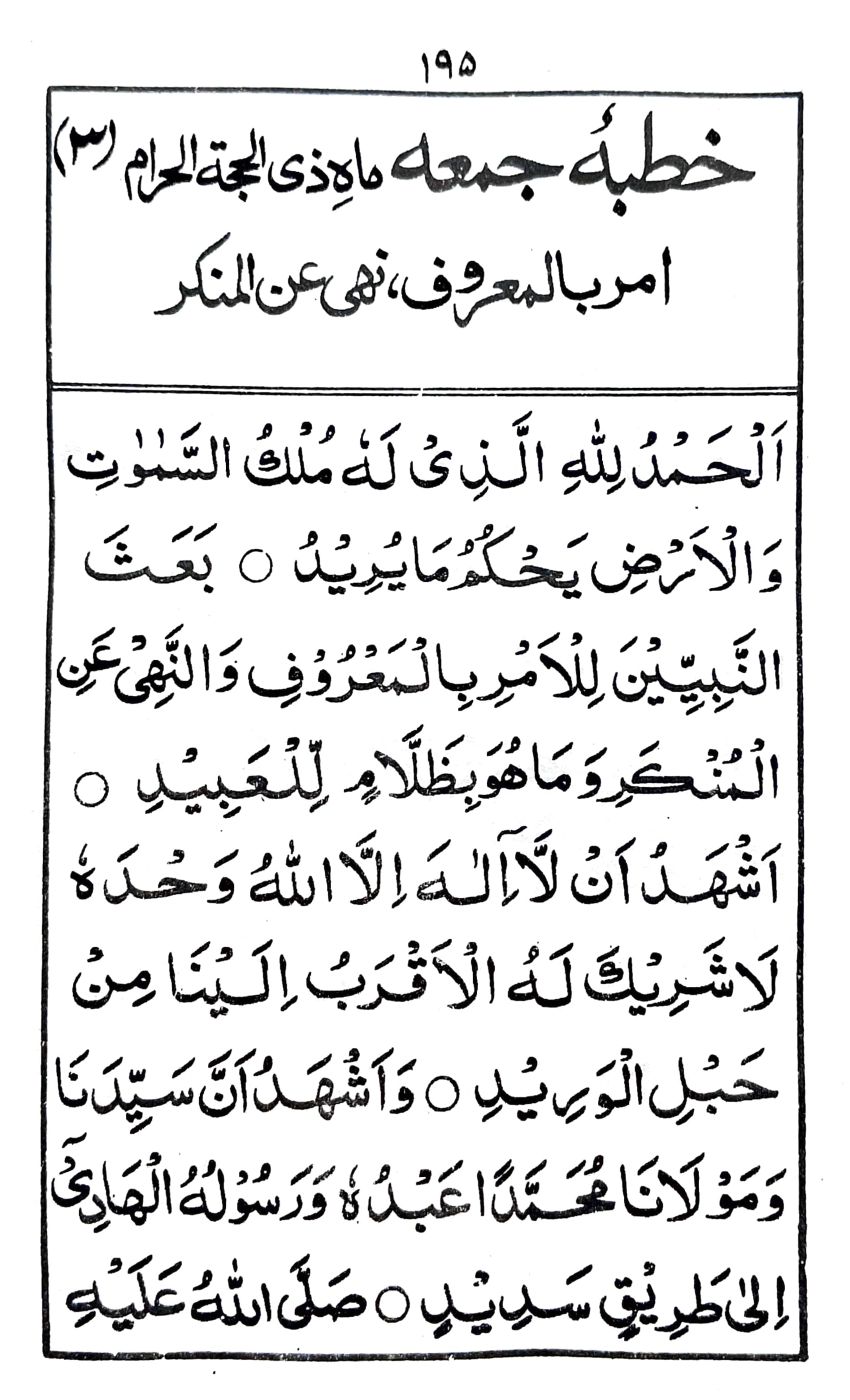 ۱۹۵
خطبۂ جمعہ ماہِ ذی الحجۃ الحرام (۳)
امر بالمعروف، نہی عن المنکر
اَلْحَمْدُ لِلّٰهِ الَّذِیْ لَهٗ مُلْكُ السَّمٰوٰتِ
وَالْاَرْضِ یَحْكُمُ مَا یُرِیْدُ ○ بَعَثَ
النَّبِیِّیْنَ لِلْاَمْرِ بِالْمَعْرُوْفِ وَالنَّهْیِ عَنِ
الْمُنْكَرِ وَمَا هُوَ بِظَلَّامٍ لِّلْعَبِیْدِ ○
اَشْهَدُ اَنْ لَّاۤ اِلٰهَ اِلَّا اللّٰهُ وَحْدَهٗ
لَا شَرِیْكَ لَهُ الْاَقْرَبُ اِلَیْنَا مِنْ
حَبْلِ الْوَرِیْدِ ○ وَاَشْهَدُ اَنَّ سَیِّدَنَا
وَمَوْلَانَا مُحَمَّدًا عَبْدُهٗ وَرَسُوْلُهُ الْهَادِیْۤ
اِلٰی طَرِیْقٍ سَدِیْدٍ ○ صَلَّی اللّٰهُ عَلَیْهِ